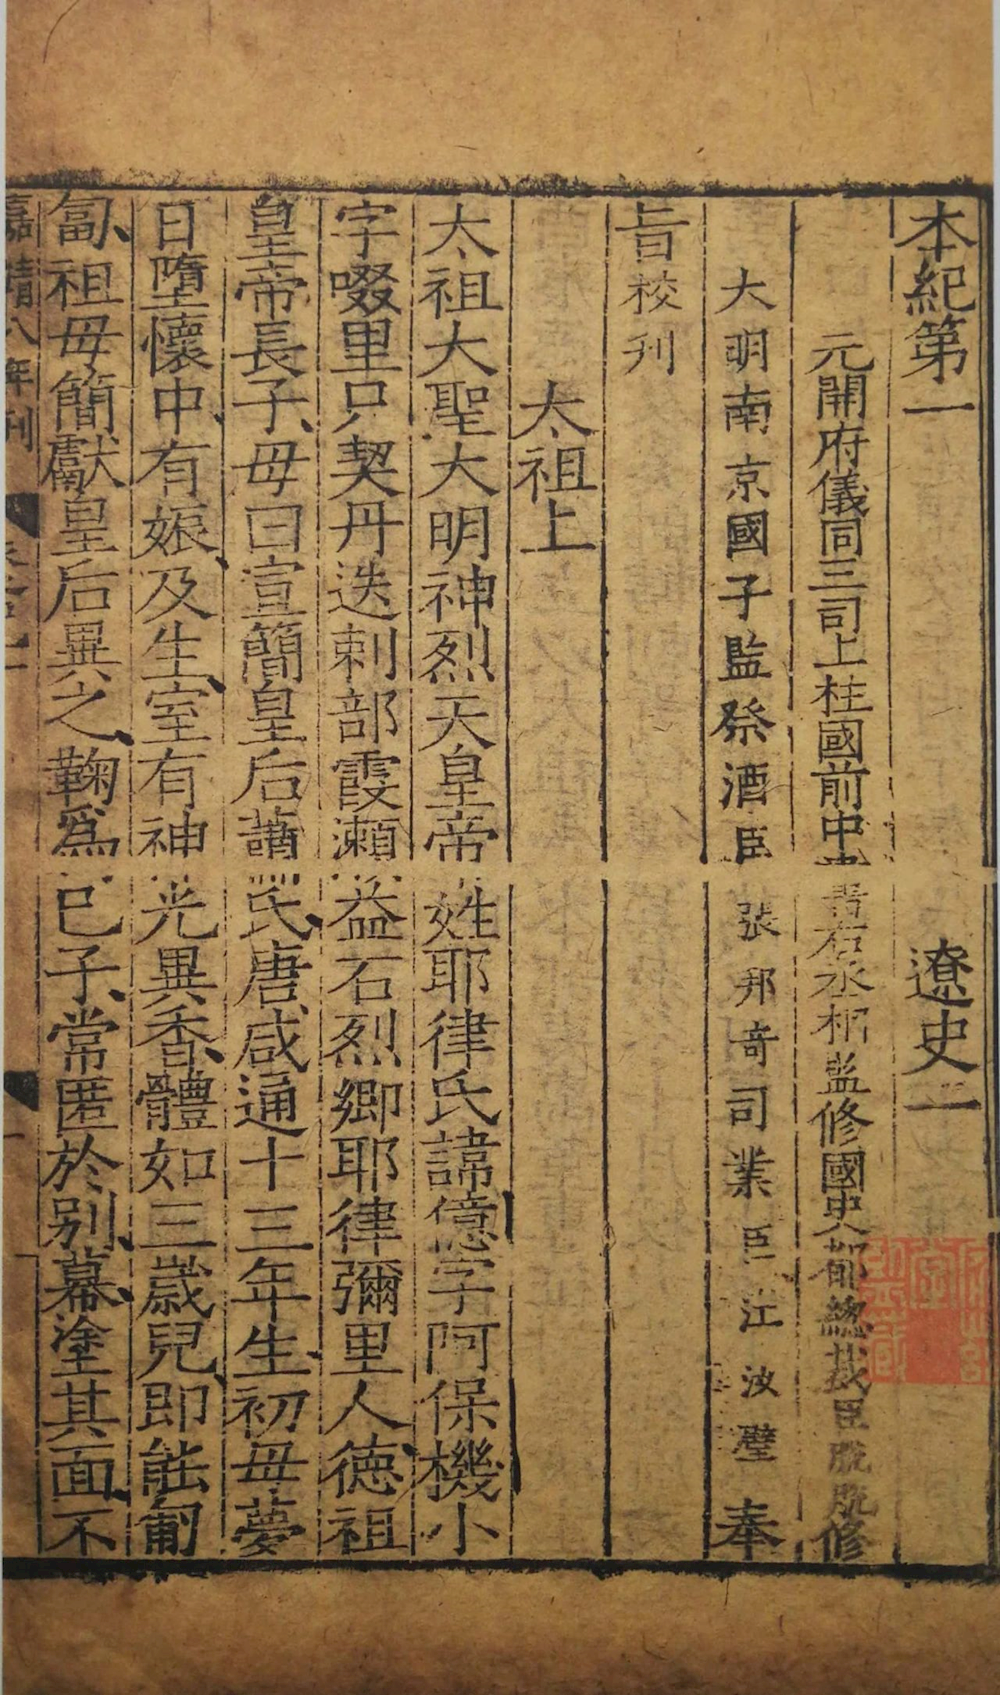 本紀第一 遼史一
元開府儀同三司上柱國前中書右丞相監修國史都總裁臣脫脫修
大明南京國子監祭酒臣張邦奇司業臣江汝璧奉
旨校刊
太祖上
太祖大聖大明神烈天皇帝姓耶律氏諱億字阿保機小
字啜里只契丹迭剌部霞瀨益石烈鄉耶律彌里人德祖
皇帝長子母曰宣簡皇后蕭氏唐咸通十三年生初母夢
日墮懷中有娠及生室有神光異香體如三歲兒即能匍
匐祖母簡獻皇后異之鞠為己子常匿於別幕塗其面不
嘉靖八年刊